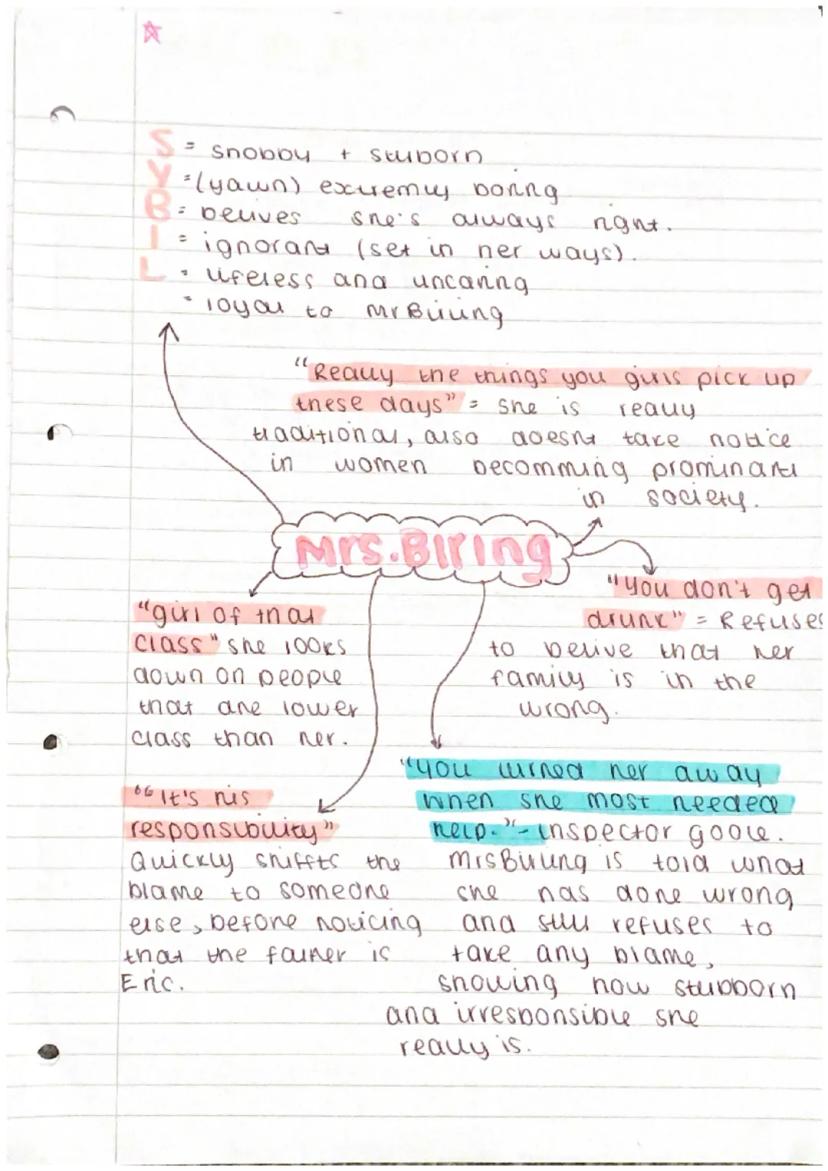 S = snobby + stuborn
Y = (yawn) extremly boring
B = belives she's always right.
I = ignorant (set in her ways).
L = lifeless and uncaring
= loyal to Mr Birling
"Really the things you girls pick up
these days" = she is really
traditional, also doesnt take notice
in women becomming prominant
in society.
Mrs. Birling
"You don't get
drunk" = Refuses
to belive that her
family is in the
wrong.
"girl of that
class" she looks
down on people
that are lower
class than her.
"You turned her away
when she most needed
help." - inspector goole.
Mrs Birling is told what
she has done wrong
and still refuses to
take any blame,
showing how stubborn
and irresponsible she
really is.
"It's his
responsibility"
Quickly shiffts the
blame to someone
else, before noticing
that the father is
Eric.